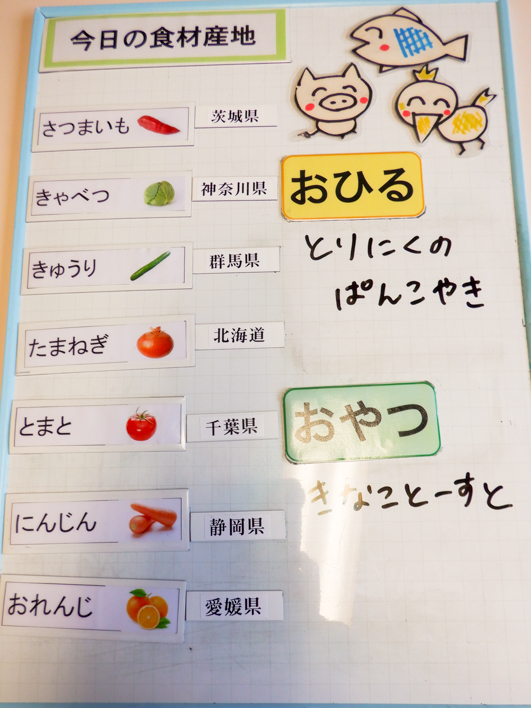 今日の食材産地
さつまいも 茨城県
きゃべつ 神奈川県
きゅうり 群馬県
たまねぎ 北海道
とまと 千葉県
にんじん 静岡県
おれんじ 愛媛県
おひる
とりにくの
ぱんこやき
おやつ
きなことーすと